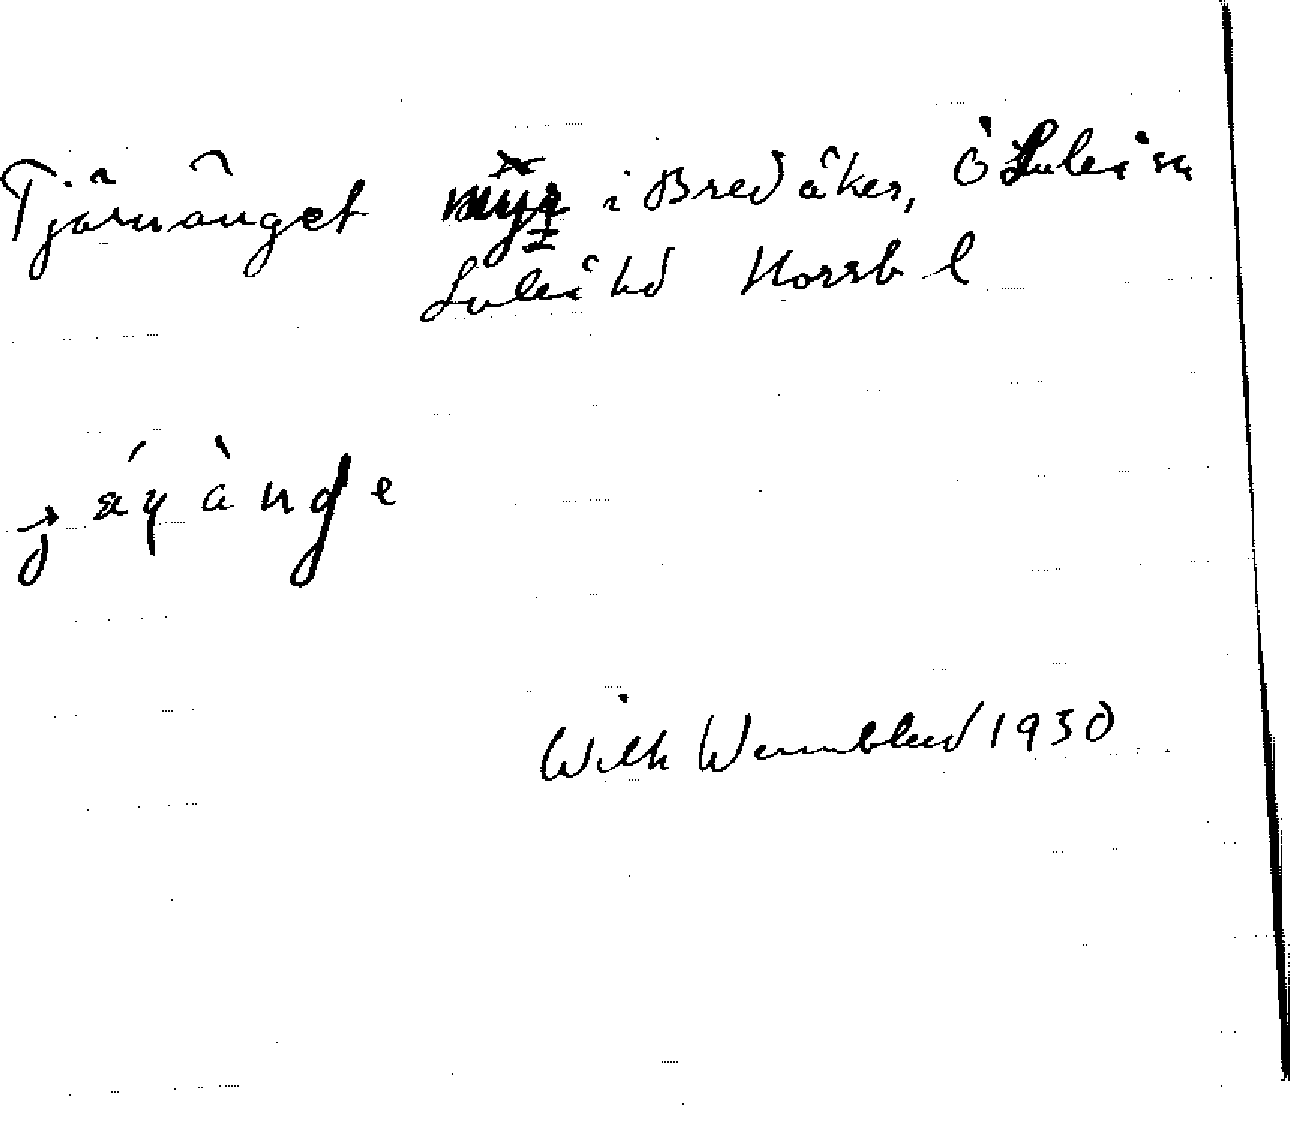 Tjärnänget myr i Bredåker, ÖLuleå sn
Luleå hd Norrb l
Wilh Wennblad 1930